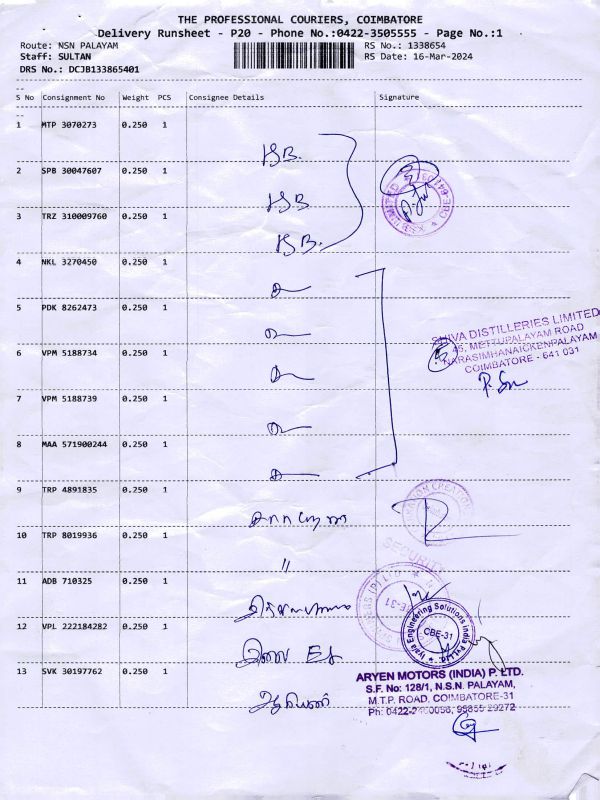 THE PROFESSIONAL COURIERS, COIMBATORE
Delivery Runsheet - P20 - Phone No.:0422-3505555 - Page No.:1
Route: NSN PALAYAM
RS No.: 1338654
Staff: SULTAN
RS Date: 16-Mar-2024
DRS No.: DCJB133865401
S No Consignment No Weight PCS Consignee Details Signature
1 MTP 3070273 0.250 1
KSB.
2 SPB 30047607 0.250 1
KSB
3 TRZ 310009760 0.250 1
KSB.
4 NKL 3270450 0.250 1
5 PDK 8262473 0.250 1
SHIVA DISTILLERIES LIMITED
45, METTUPALAYAM ROAD
NARASIMHANAICKENPALAYAM
COIMBATORE - 641 031
6 VPM 5188734 0.250 1
7 VPM 5188739 0.250 1
8 MAA 571900244 0.250 1
9 TRP 4891835 0.250 1
10 TRP 8019936 0.250 1
"
SECURITY
11 ADB 710325 0.250 1
Engineering Solutions India
CBE-31
12 VPL 222184282 0.250 1
13 SVK 30197762 0.250 1
ARYEN MOTORS (INDIA) P. LTD.
S.F. No: 128/1, N.S.N. PALAYAM,
M.T.P. ROAD, COIMBATORE-31
Ph: 0422-2460056, 95855 29272